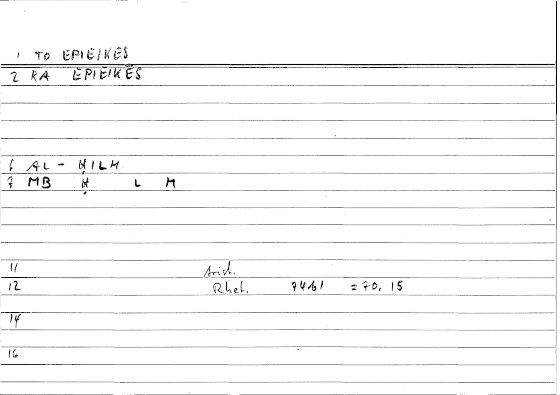 1 TO EPIEIKĒS
2 RA EPIEIKĒS
6 AL-ḤILM
7 MB Ḥ L M
11 Arist.
12 Rhet. 74b1 = 70, 15
14
16